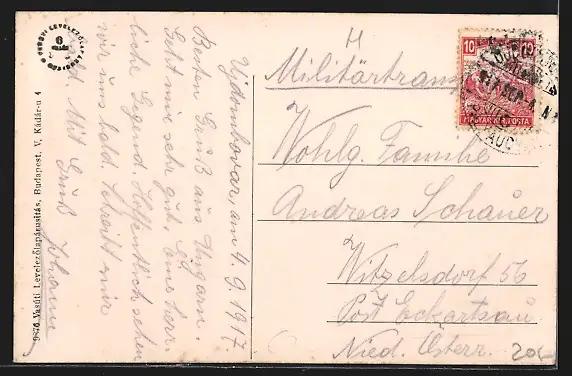 Ujdombovar, am 4.9.1917.
Besten Gruß aus Ungarn.
Geht mir sehr gut, eine herr-
liche Gegend. Hoffentlich sehen
wir uns bald. Schreibt mir
bald. Mit Gruß Johann
Militärtrans
Wohlg. Familie
Andreas Schauer
Witzelsdorf 56
Post Eckartsau
Nied. Österr.
20.-
10
MAGYAR KIR. POSTA
9876 Vasúti Levelezőlapárusitás, Budapest, V, Kádár-u 4